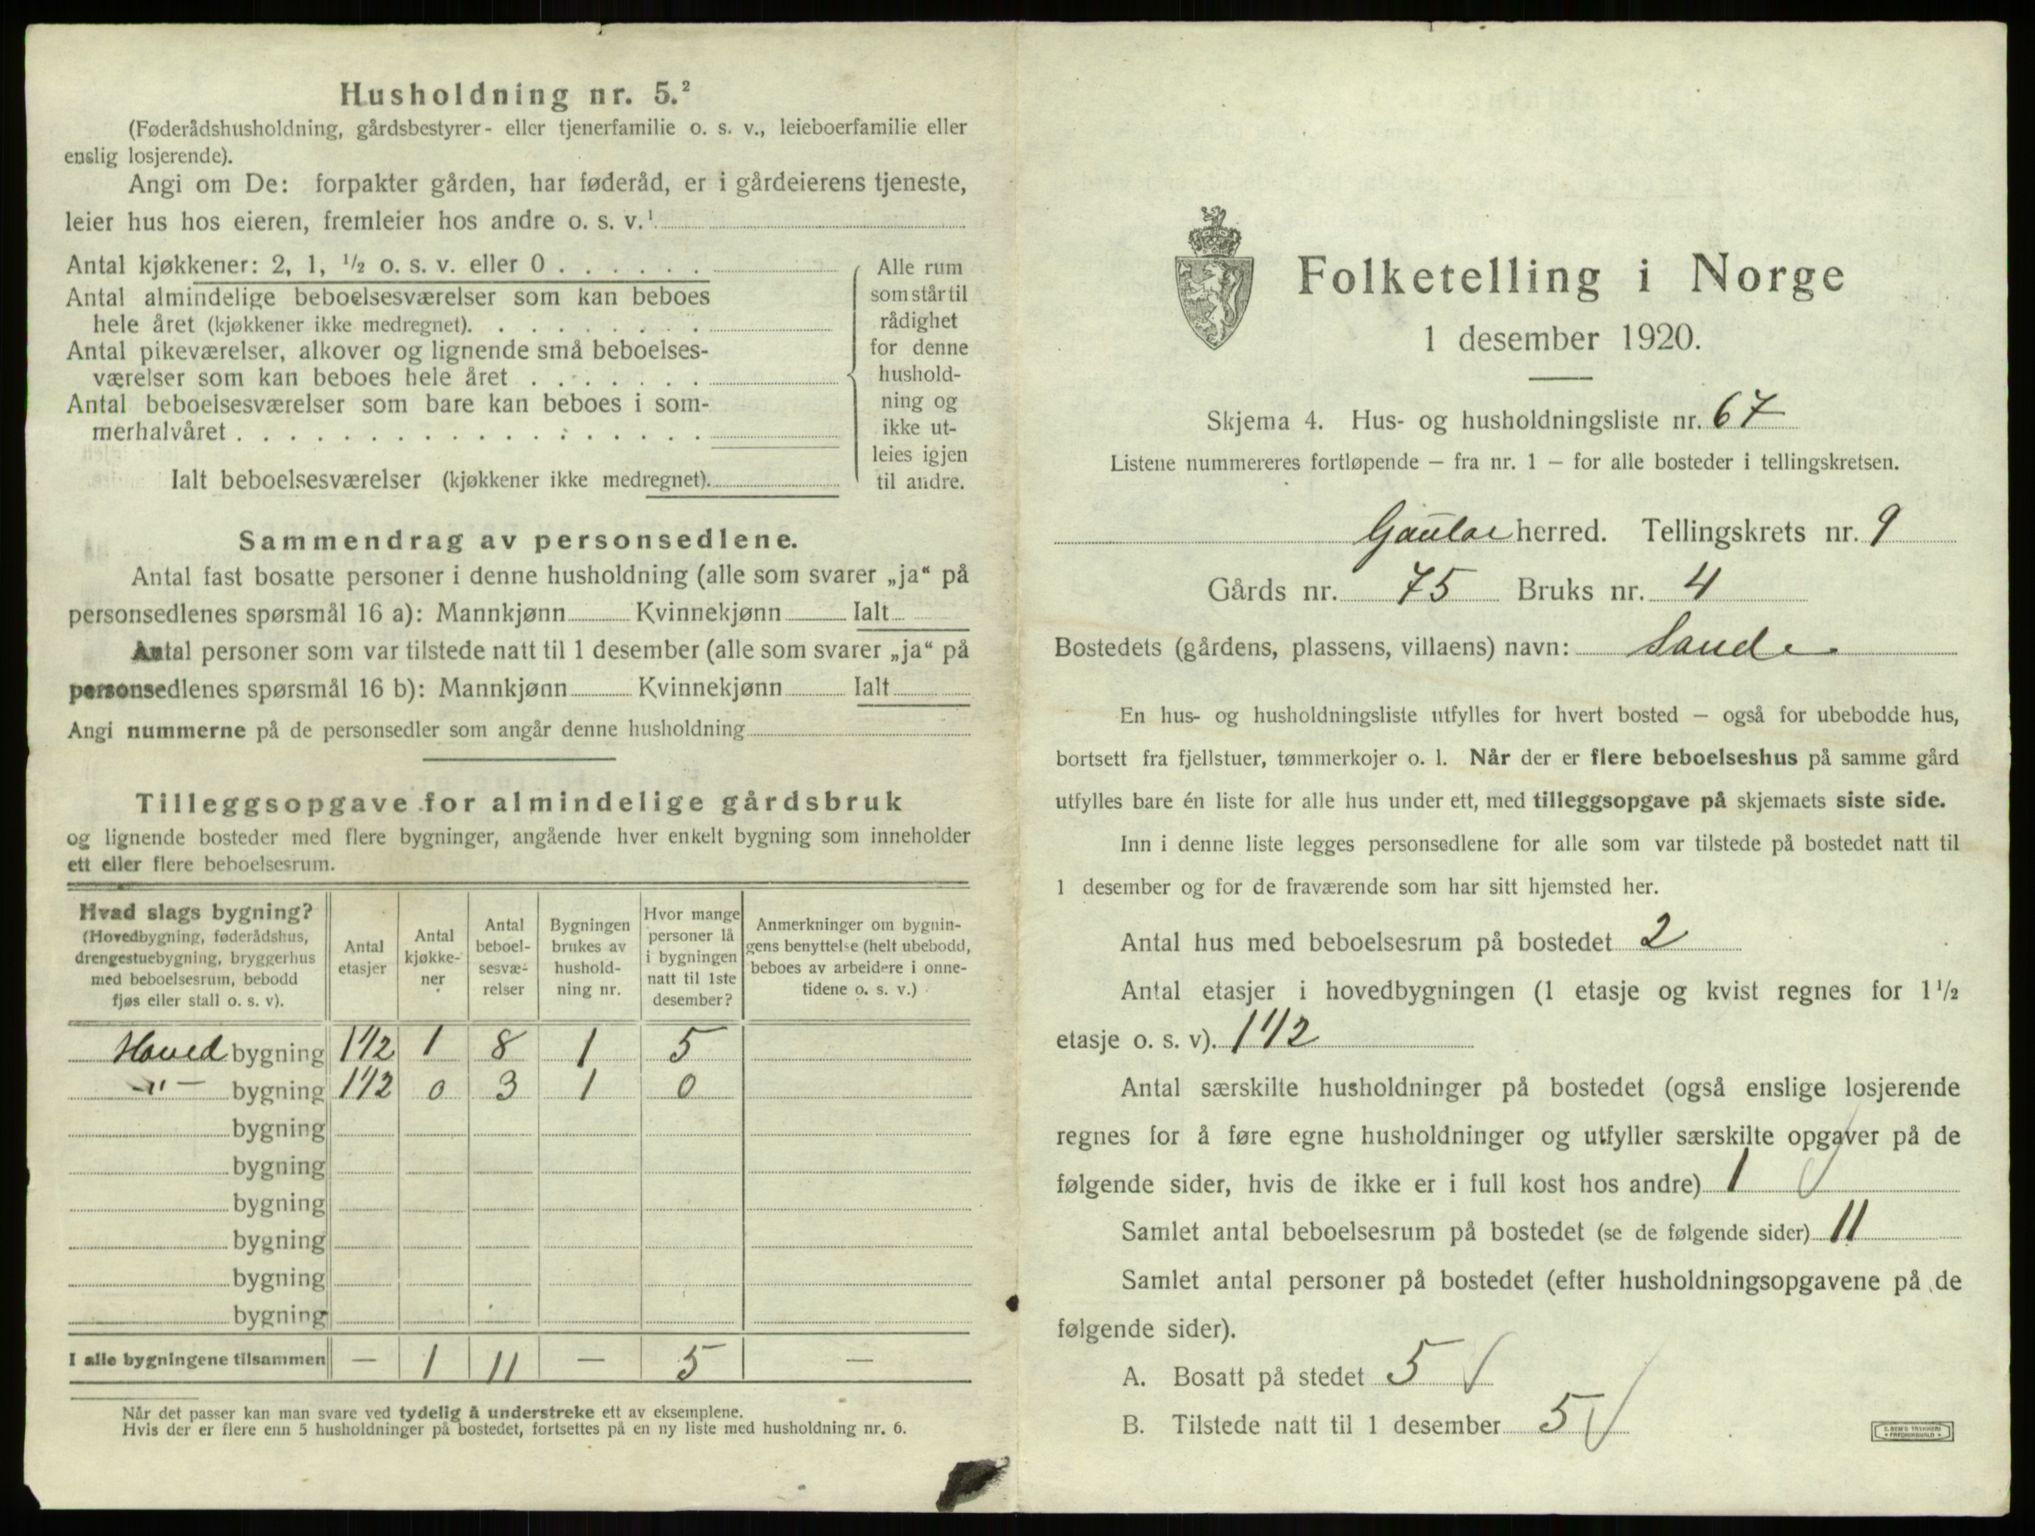 Husholdning nr. 5.²
(Føderådshusholdning, gårdsbestyrer- eller tjenerfamilie o. s. v., leieboerfamilie eller
enslig losjerende).
Angi om De: forpakter gården, har føderåd, er i gårdeierens tjeneste,
leier hus hos eieren, fremleier hos andre o. s. v.¹
Antal kjøkkener: 2, 1, ½ o. s. v. eller 0 . . . . . .
Antal almindelige beboelsesværelser som kan beboes
hele året (kjøkkener ikke medregnet). . . . . . . . .
Antal pikeværelser, alkover og lignende små beboelses-
værelser som kan beboes hele året . . . . . . .
Antal beboelsesværelser som bare kan beboes i som-
merhalvåret . . . . . . . . . . . . . . . . . .
Ialt beboelsesværelser (kjøkkener ikke medregnet).
Alle rum
som står til
rådighet
for denne
hushold-
ning og
ikke ut-
leies igjen
til andre.
Sammendrag av personsedlene.
Antal fast bosatte personer i denne husholdning (alle som svarer „ja“ på
personsedlenes spørsmål 16 a): Mannkjønn Kvinnekjønn Ialt
Antal personer som var tilstede natt til 1 desember (alle som svarer „ja“ på
personsedlenes spørsmål 16 b): Mannkjønn Kvinnekjønn Ialt
Angi nummerne på de personsedler som angår denne husholdning
Tilleggsopgave for almindelige gårdsbruk
og lignende bosteder med flere bygninger, angående hver enkelt bygning som inneholder
ett eller flere beboelsesrum.
Hvad slags bygning?
(Hovedbygning, føderådshus,
drengestuebygning, bryggerhus
med beboelsesrum, bebodd
fjøs eller stall o. s. v).
Antal
etasjer
Antal
kjøkke-
ner
Antal
beboel-
sesvæ-
relser
Bygningen
brukes av
hushold-
ning nr.
Hvor mange
personer lå
i bygningen
natt til 1ste
desember?
Anmerkninger om bygnin-
gens benyttelse (helt ubebodd,
beboes av arbeidere i onne-
tidene o. s. v.)
Hoved bygning 1 1/2 1 8 1 5
-"- bygning 1 1/2 0 3 1 0
bygning
bygning
bygning
bygning
bygning
bygning
I alle bygningene tilsammen — 1 11 — 5 —
Når det passer kan man svare ved tydelig å understreke ett av eksemplene.
Hvis der er flere enn 5 husholdninger på bostedet, fortsettes på en ny liste med husholdning nr. 6.
Folketelling i Norge
1 desember 1920.
Skjema 4. Hus- og husholdningsliste nr. 67
Listene nummereres fortløpende – fra nr. 1 – for alle bosteder i tellingskretsen.
Gaular herred. Tellingskrets nr. 9
Gårds nr. 75 Bruks nr. 4
Bostedets (gårdens, plassens, villaens) navn: Sande
En hus- og husholdningsliste utfylles for hvert bosted – også for ubebodde hus,
bortsett fra fjellstuer, tømmerkojer o. l. Når der er flere beboelseshus på samme gård
utfylles bare én liste for alle hus under ett, med tilleggsopgave på skjemaets siste side.
Inn i denne liste legges personsedlene for alle som var tilstede på bostedet natt til
1 desember og for de fraværende som har sitt hjemsted her.
Antal hus med beboelsesrum på bostedet 2
Antal etasjer i hovedbygningen (1 etasje og kvist regnes for 1½
etasje o. s. v). 1 1/2
Antal særskilte husholdninger på bostedet (også enslige losjerende
regnes for å føre egne husholdninger og utfyller særskilte opgaver på de
følgende sider, hvis de ikke er i full kost hos andre) 1
Samlet antal beboelsesrum på bostedet (se de følgende sider) 11
Samlet antal personer på bostedet (efter husholdningsopgavene på de
følgende sider).
A. Bosatt på stedet 5
B. Tilstede natt til 1 desember 5